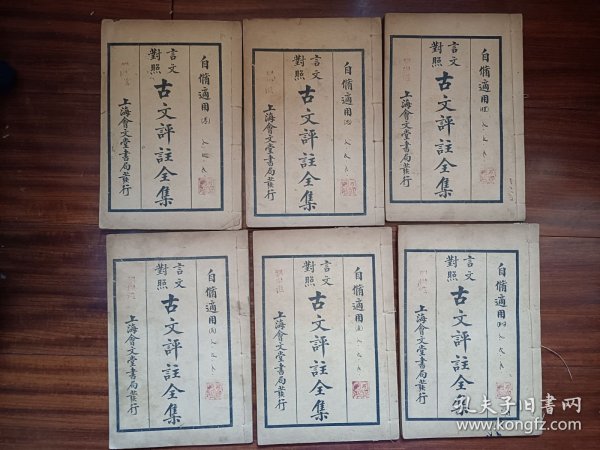 自脩適用
言文
對照
古文評註全集
上海會文堂書局發行
自脩適用
言文
對照
古文評註全集
上海會文堂書局發行
自脩適用
言文
對照
古文評註全集
上海會文堂書局發行
自脩適用
言文
對照
古文評註全集
上海會文堂書局發行
自脩適用
言文
對照
古文評註全集
上海會文堂書局發行
自脩適用
言文
對照
古文評註全集
上海會文堂書局發行
孔夫子旧书网
www.kongfz.com